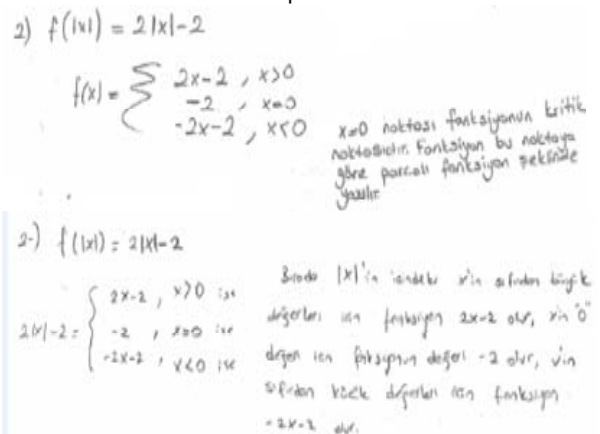 2) f(|x|) = 2|x|-2
f(x) = { 2x-2 , x>0
-2 , x=0
-2x-2 , x<0
x=0 noktası fonksiyonun kritik
noktasıdır. Fonksiyon bu noktaya
göre parçalı fonksiyon şeklinde
yazılır
2-) f(|x|) = 2|x|-2
2|x|-2 = { 2x-2 , x>0 ise
-2 , x=0 ise
-2x-2 , x<0 ise
Burada |x|'in içindeki x'in sıfırdan büyük
değerleri için fonksiyon 2x-2 olur, x'in "0"
değeri için fonksiyonun değeri -2 olur, x'in
sıfırdan küçük değerleri için fonksiyon
-2x-2 olur.